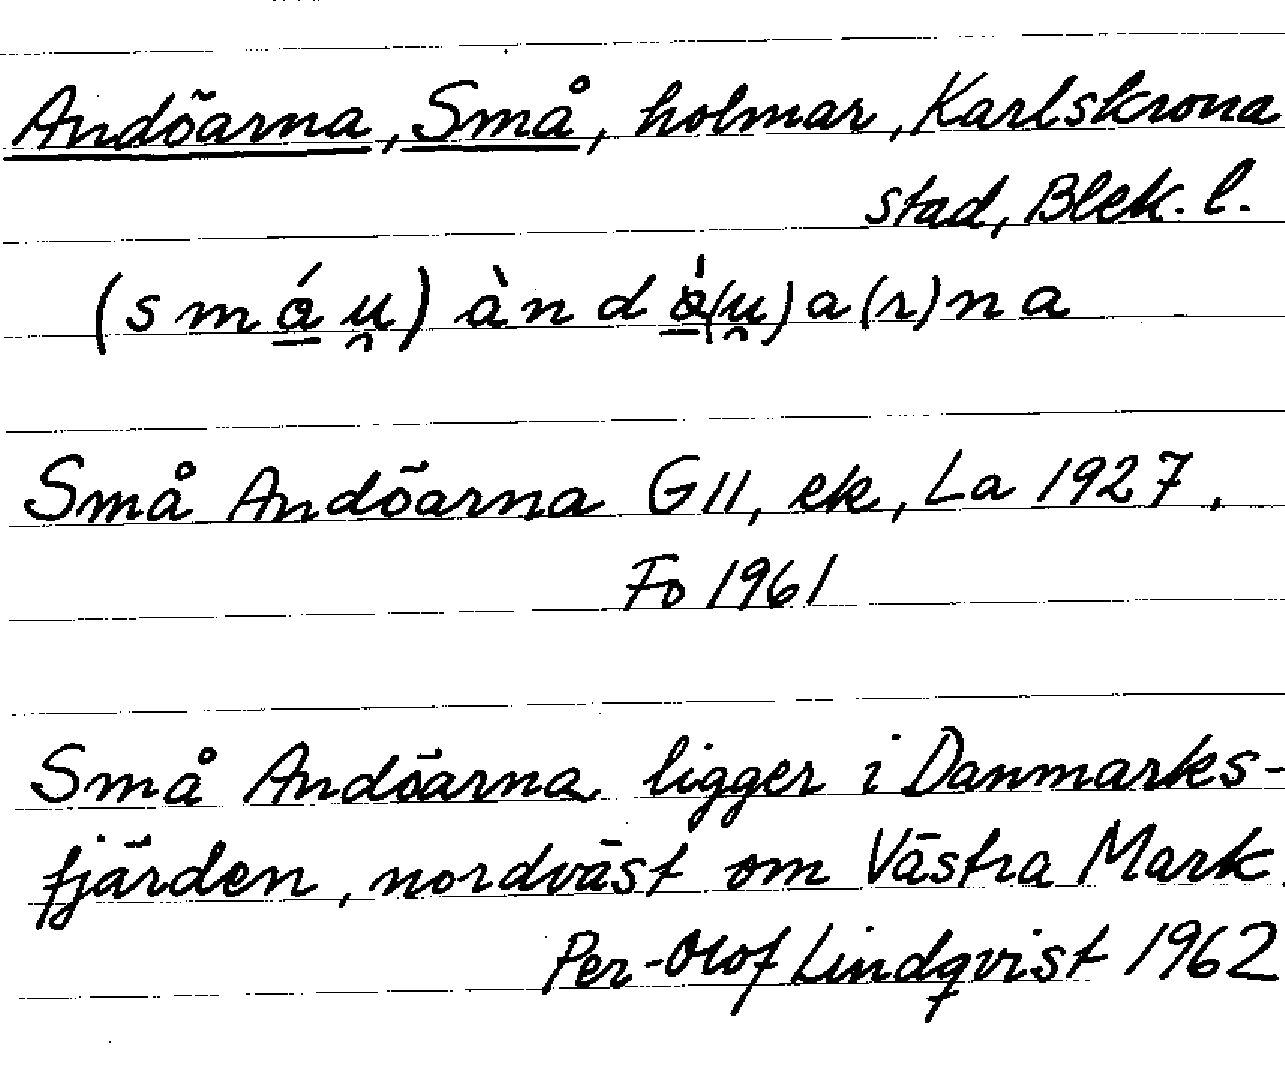 Andöarna, Små, holmar, Karlskrona
stad, Blek. l.
(smá̱u̯) àndá̱(u̯)a(r)na
Små Andöarna GII, ek, La 1927,
Fo 1961
Små Andöarna ligger i Danmarks-
fjärden, nordväst om Västra Mark.
Per-Olof Lindqvist 1962